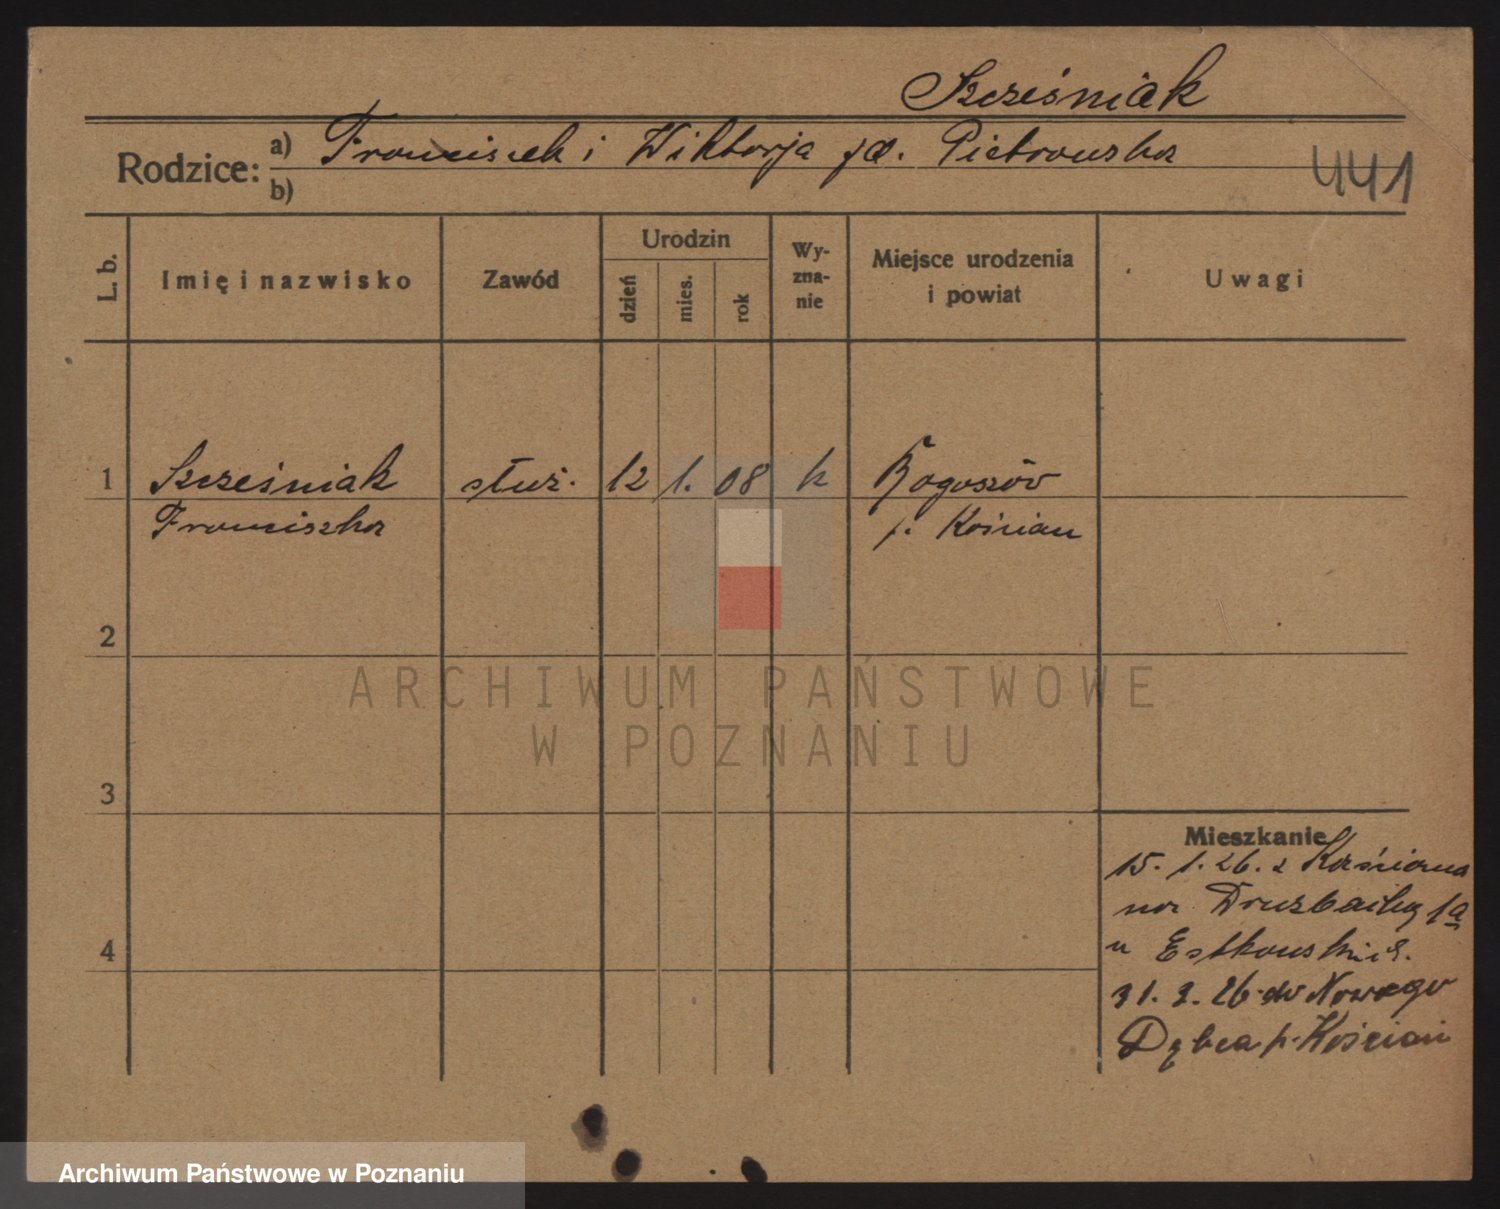 Szcześniak
Rodzice: a) Franciszek i Wiktorja zd. Pietrowska
b)
441
L. b. Imię i nazwisko Zawód Urodzin dzień mies. rok Wy-zna-nie Miejsce urodzenia i powiat Uwagi
1 Szcześniak służ. 12 1. 08 k Rogoszów
Franciszka p. Kościan
2
ARCHIWUM PAŃSTWOWE
W POZNANIU
3
Mieszkanie
15. 1. 26. z Kościana
na Drużbackiej 1a
u Estkowskiej.
4
31. 3. 26 do Nowego
Dębca p. Kościan
Archiwum Państwowe w Poznaniu